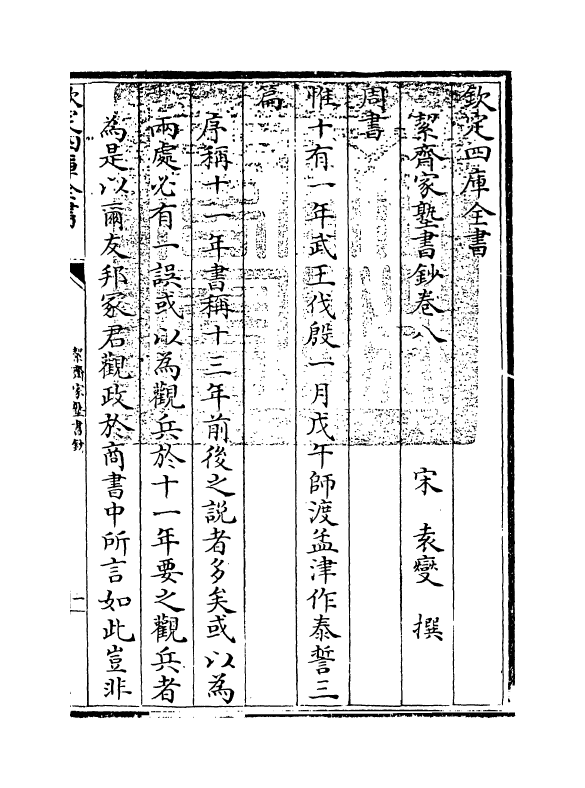 欽定四庫全書
絜齋家塾書鈔卷八
宋 袁燮 撰
周書
惟十有一年武王伐殷一月戊午師渡孟津作泰誓三
篇
序稱十一年書稱十三年前後之説者多矣或以為
兩處必有一誤或以為觀兵於十一年要之觀兵者
為是以爾友邦冢君觀政於商書中所言如此豈非
欽定四庫全書
絜齋家塾書鈔
一